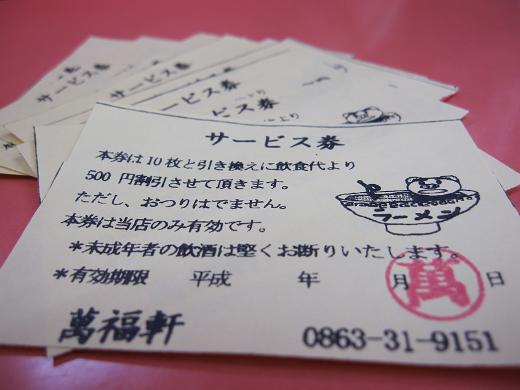 サービス券
サービス券
サービス券
より
サービス券
本券は10枚と引き換えに飲食代より
500 円割引させて頂きます。
ただし、おつりはでません。
本券は当店のみ有効です。
ラーメン
*未成年者の飲酒は堅くお断りいたします。
*有効期限 平成 年 月 日
萬
萬福軒 0863-31-9151